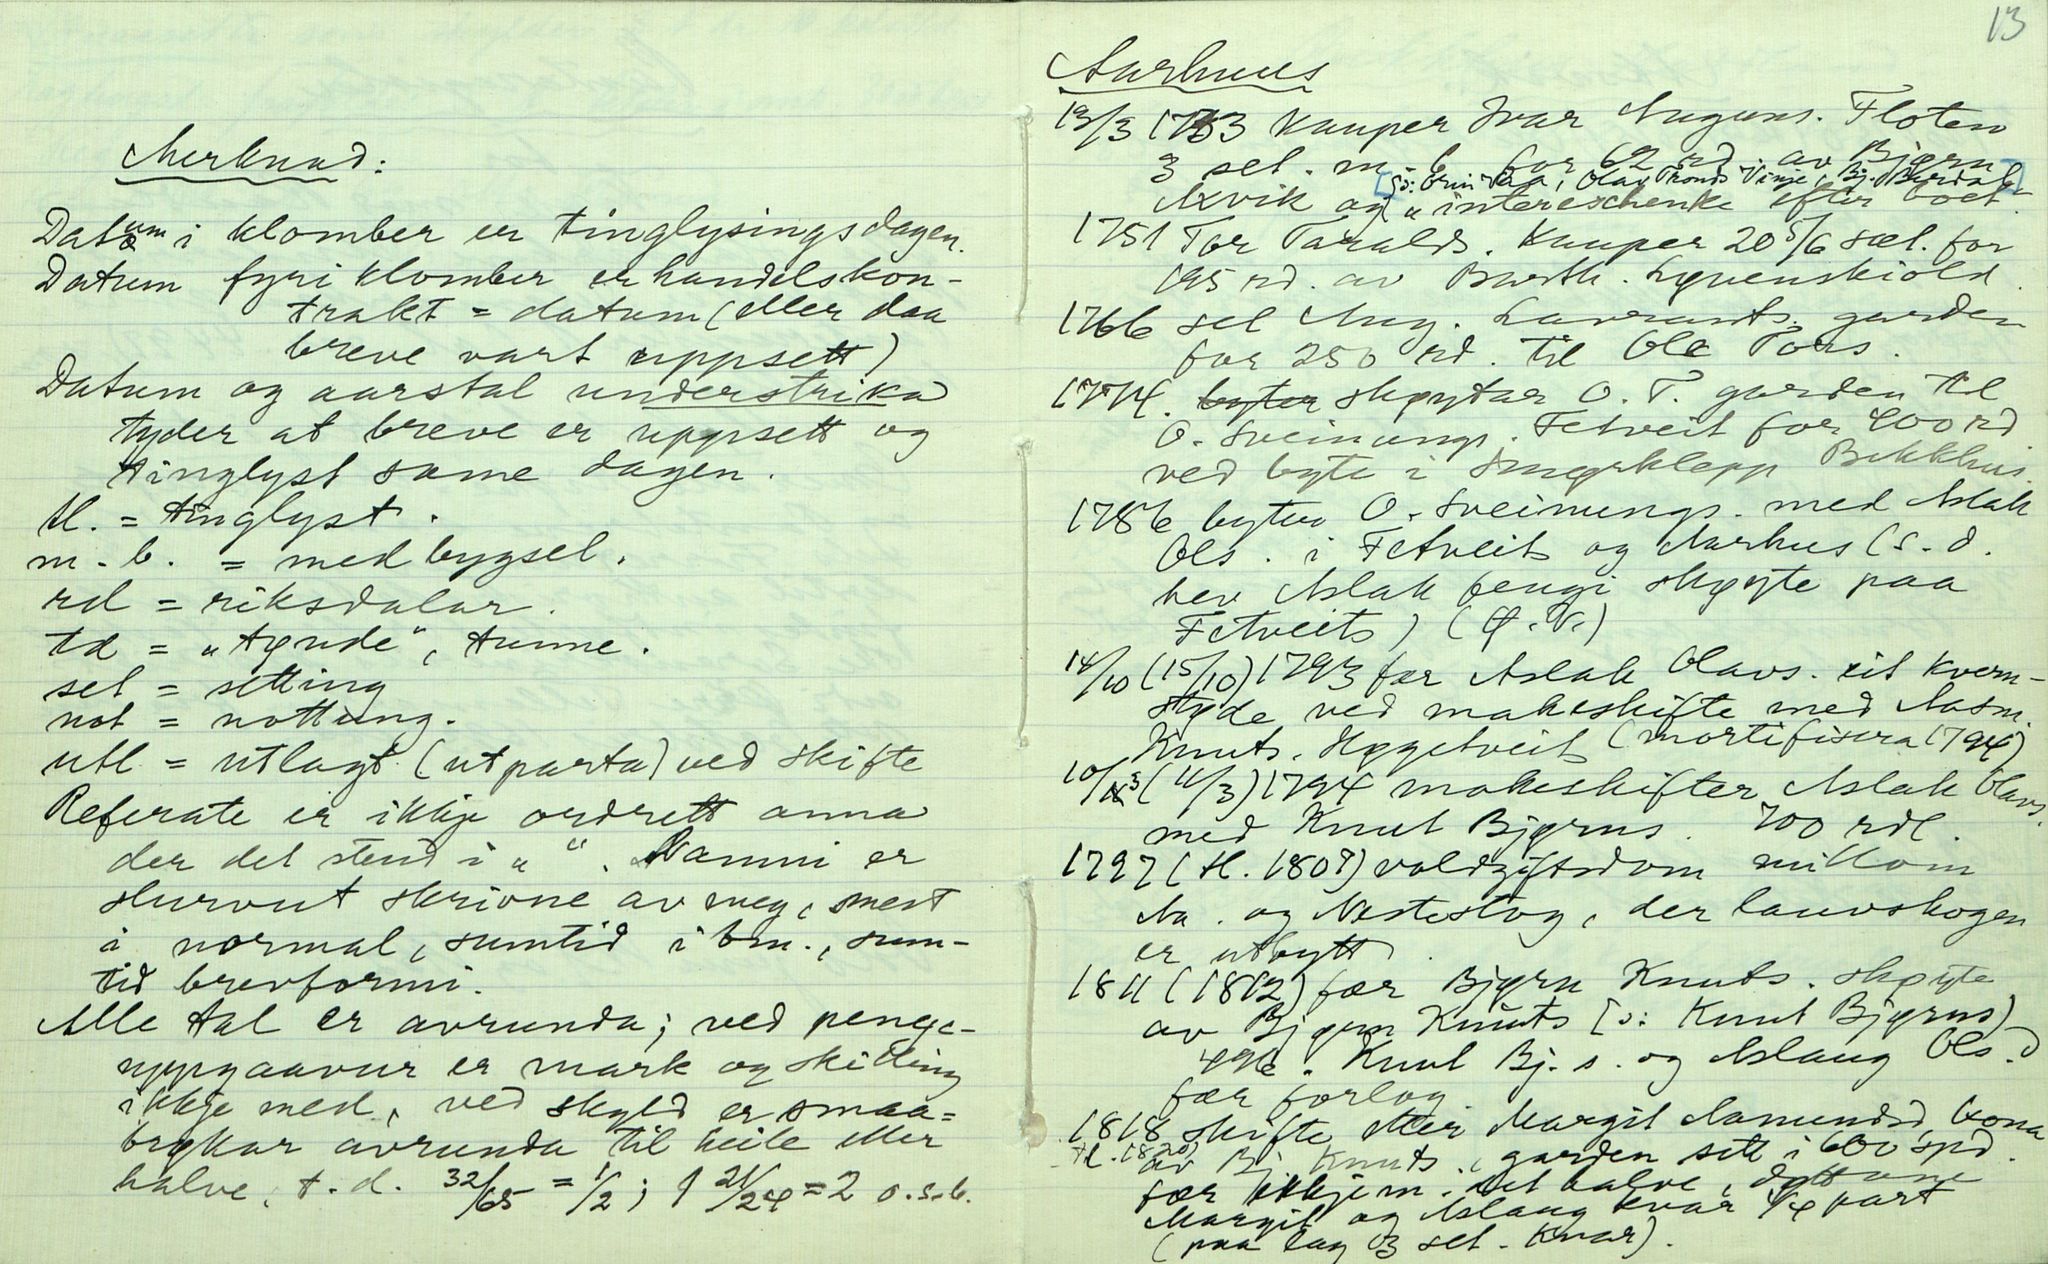 Merknad:
Datum i klomber er tinglysingsdagen.
Datum fyri klomber er handelskon-
trakt = datum (eller daa
breve vart uppsett)
Datum og aarstal understrika
tyder at breve er uppsett og
tinglyst same dagen.
tl. = tinglyst.
m. b. = med bygsel.
rd = riksdalar.
td = „tynde", tunne.
set = setting
not = notting.
utl = utlagt (utparta) ved skifte
Referate er ikkje ordrett anna
der det stend i „ ". Namni er
skrivne av meg, mest
i normal, sumtid i bm., sum-
tid brevformi.
Alle tal er avrunda; ved penge-
uppgaavur er mark og skilling
ikkje med, ved skyld er smaa-
brøkar avrunda til heile eller
halve, t. d. 32/65 = 1/2; 1 21/24 = 2 o.s.b.
13
Aarhuus
13/3 1733 kauper Ivar Auguns. Floten
3 set. m. b. for 62 rd av Bjørn
[ɔ: Olav Tronds Vinje, Bj. Burdal]
Axvik og „intereschenke efter boet"
1751 Tor Taralds. kauper 20 5/6 sæt. for
195 rd. av Barth. Løvenskiold.
1766 sel Aug. Lavrants. garden
for 250 rd. til Ole Tors.
1774. byter skøytar O. T. garden til
O. Sveinungs. Fetveit for 400 rd
ved byte i Smørklepp Bekkhus.
1786 byter O. Sveinungs. med Aslak
Ols. i Fetveit og Aarhus (s. d.
hev Aslak fengi skøyte paa
Fetveit)
14/10 (15/10) 1793 fær Aslak Olavs. eit kvern-
støde ved makeskifte med Aasm.
Knuts. Høgetveit (mortifisera 1794)
10/3 (11/3) 1794 makeskifter Aslak Olavs.
med Knut Bjørns. 700 rdl.
1797 (tl. 1807) voldgiftsdom millom
Aa. og Nestestog, der lauvskogen
er utbytt.
1811 (1812) fær Bjørn Knuts. skøyte
av Bjørn Knuts [ɔ: Knut Bjørns)
496. Knut Bj. s. og Aslaug Ols. d
fær forlog
1818 skifte etter Margit Aamundsd, kona
tl. 1820) av Bj. Knuts., garden sett i 600 spd.
fær det halve, døttane
Margit og Aslaug kvar 1/4 part
(paa lag 3 set. kvar).